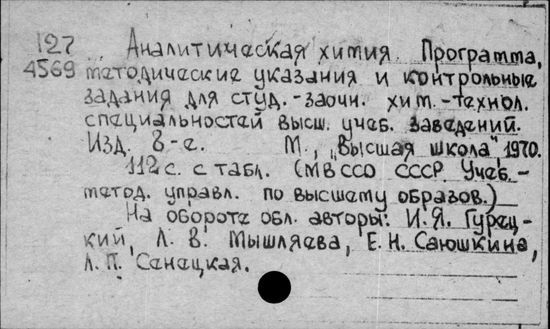 127
4569
Аналитическая химия. Программа,
методические указания и контрольные
задания для студ.-заочн. хим.-технол.
специальностей высш. учеб. заведений.
Изд. 8-е. М., „Высшая школа", 1970.
112 с. с табл. (МВССО СССР. Учеб.-
метод. управл. по высшему образов.)
На обороте обл. авторы: И.Я. Гурец-
кий, Л. В. Мышляева, Е. Н. Саюшкина,
Л. П. Сенецкая.